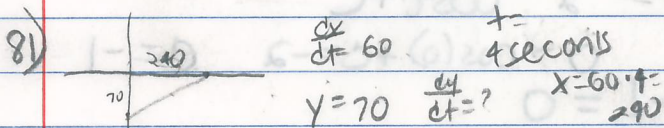 81) 240 dx/dt = 60 t= 4 seconds
70 y = 70 dy/dt = ? x = 60·4 = 240